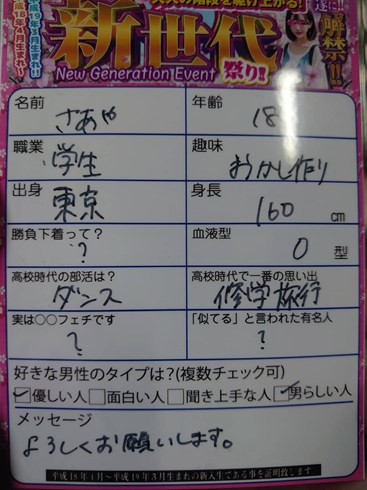 大人の階段を駆け上がる!
遂に!!
解禁!!
平成19年3月生まれ!
平成18年4月生まれ〜
新世代
New Generation Event 祭り!
名前 さあや
年齢 18
職業 学生
趣味 おかし作り
出身 東京
身長 160 cm
勝負下着って? ?
血液型 O 型
高校時代の部活は? ダンス
高校時代で一番の思い出 修学旅行
実は○○フェチです ?
「似てる」と言われた有名人 ?
好きな男性のタイプは?(複数チェック可)
✓優しい人 □面白い人 □聞き上手な人 ✓男らしい人
メッセージ
よろしくお願いします。
平成18年4月〜平成19年3月生まれの新入生である事を証明致します